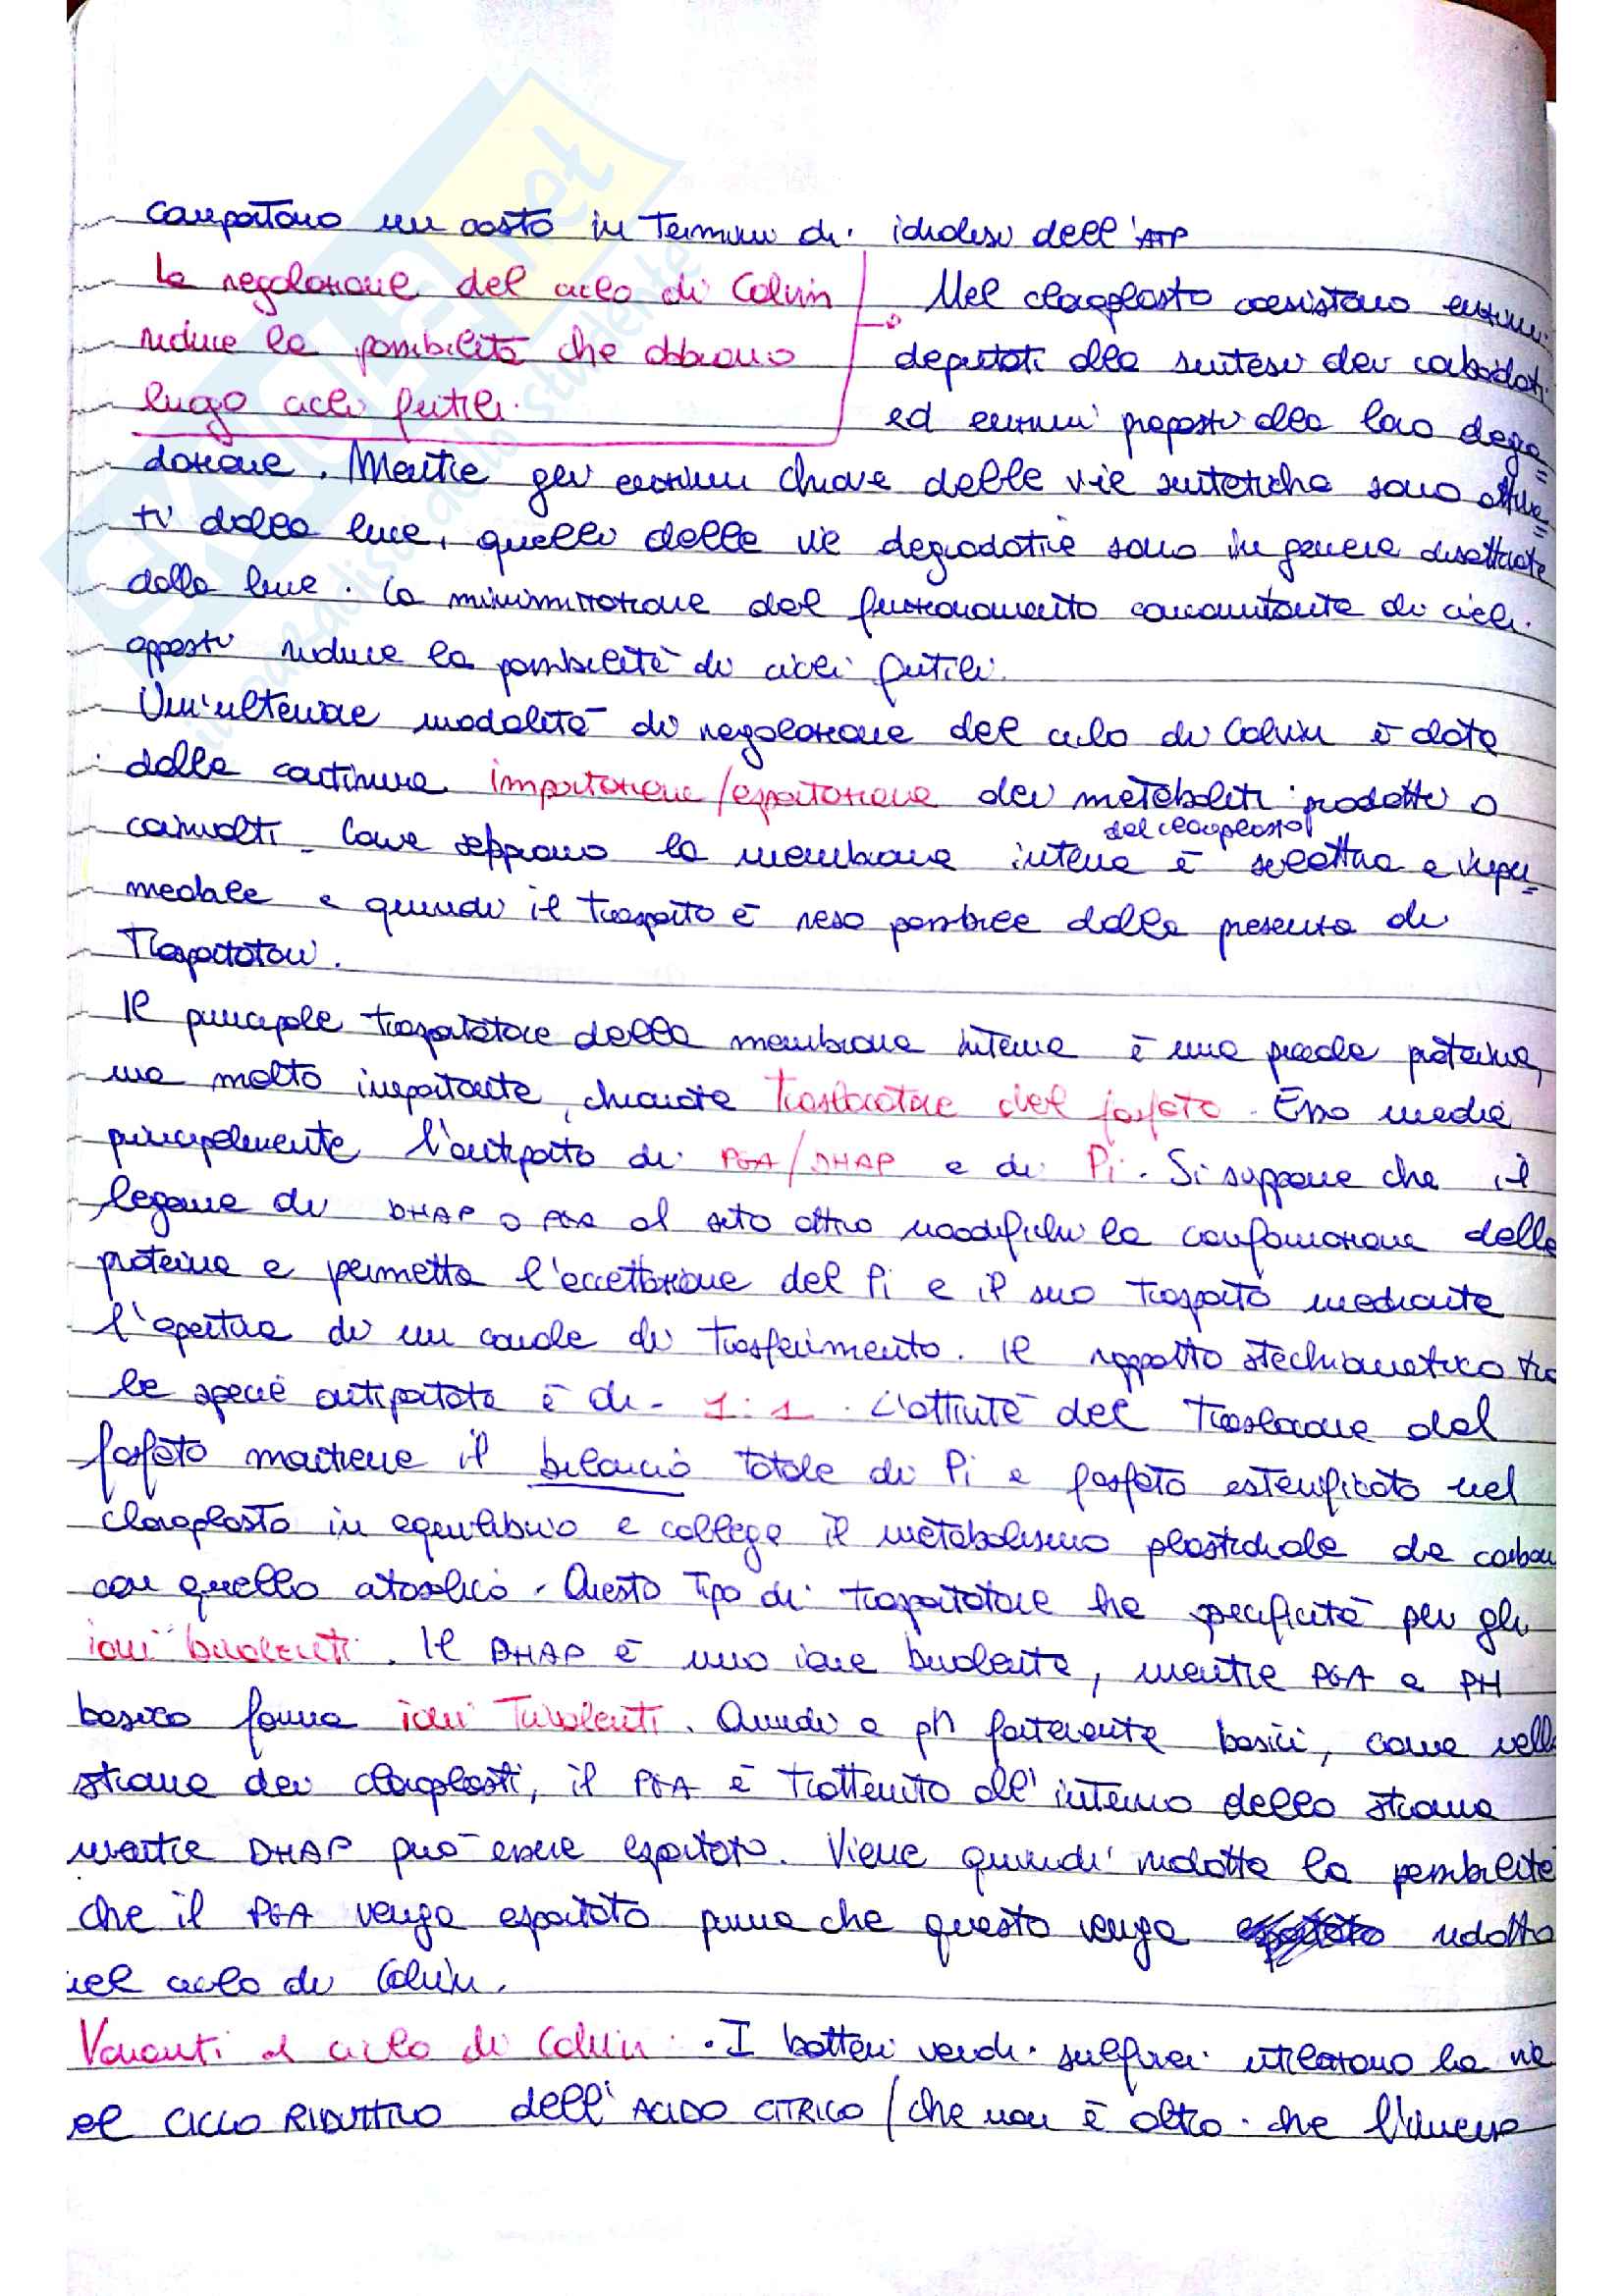 comportano un costo in termini di idrolisi dell'ATP
la regolazione del ciclo di Calvin
riduce la possibilità che abbiano
luogo cicli futili.
Nel cloroplasto coesistono enzimi
deputati alla sintesi dei carboidrati
ed enzimi preposti alla loro degra=
dazione. Mentre gli enzimi chiave delle vie sintetiche sono attiva=
ti dalla luce, quelli delle vie degradative sono in genere disattivate
dalla luce. La minimizzazione del funzionamento concomitante di cicli
opposti riduce la possibilità di cicli futili.
Un'ulteriore modalità di regolazione del ciclo di Calvin è data
dalla continua importazione/esportazione dei metaboliti prodotti o
coinvolti. Come sappiamo la membrana interna del cloroplasto è selettiva e imper=
meabile e quindi il trasporto è reso possibile dalla presenza di
Trasportatori.
Il principale trasportatore della membrana interna è una piccola proteina,
ma molto importante, chiamata traslocatore del fosfato. Esso media
principalmente l'antiporto di PGA/DHAP e di Pi. Si suppone che il
legame di DHAP o PGA al sito attivo modifichi la conformazione della
proteina e permetta l'accettazione del Pi e il suo trasporto mediante
l'apertura di un canale di trasferimento. Il rapporto stechiometrico tra
le specie antiportate è di 1:1. L'attività del traslocatore del
fosfato mantiene il bilancio totale di Pi e fosfato esterificato nel
cloroplasto in equilibrio e collega il metabolismo plastidiale de carbon
con quello citosolico. Questo tipo di trasportatore ha specificità per gli
ioni bivalenti. Il DHAP è uno ione bivalente, mentre PGA a PH
basico forma ioni trivalenti. Quindi a pH fortemente basici, come nello
stroma dei cloroplasti, il PGA è trattenuto all'interno dello stroma
mentre DHAP può essere esportato. Viene quindi ridotta la possibilità
che il PGA venga esportato prima che questo venga ridotto
nel ciclo di Calvin.
Varianti al ciclo di Calvin: • I batteri verdi sulfurei utilizzano la via
el CICLO RIDUTTIVO dell'ACIDO CITRICO (che non è altro che l'inverso
SKUOLA.net
il paradiso dello studente